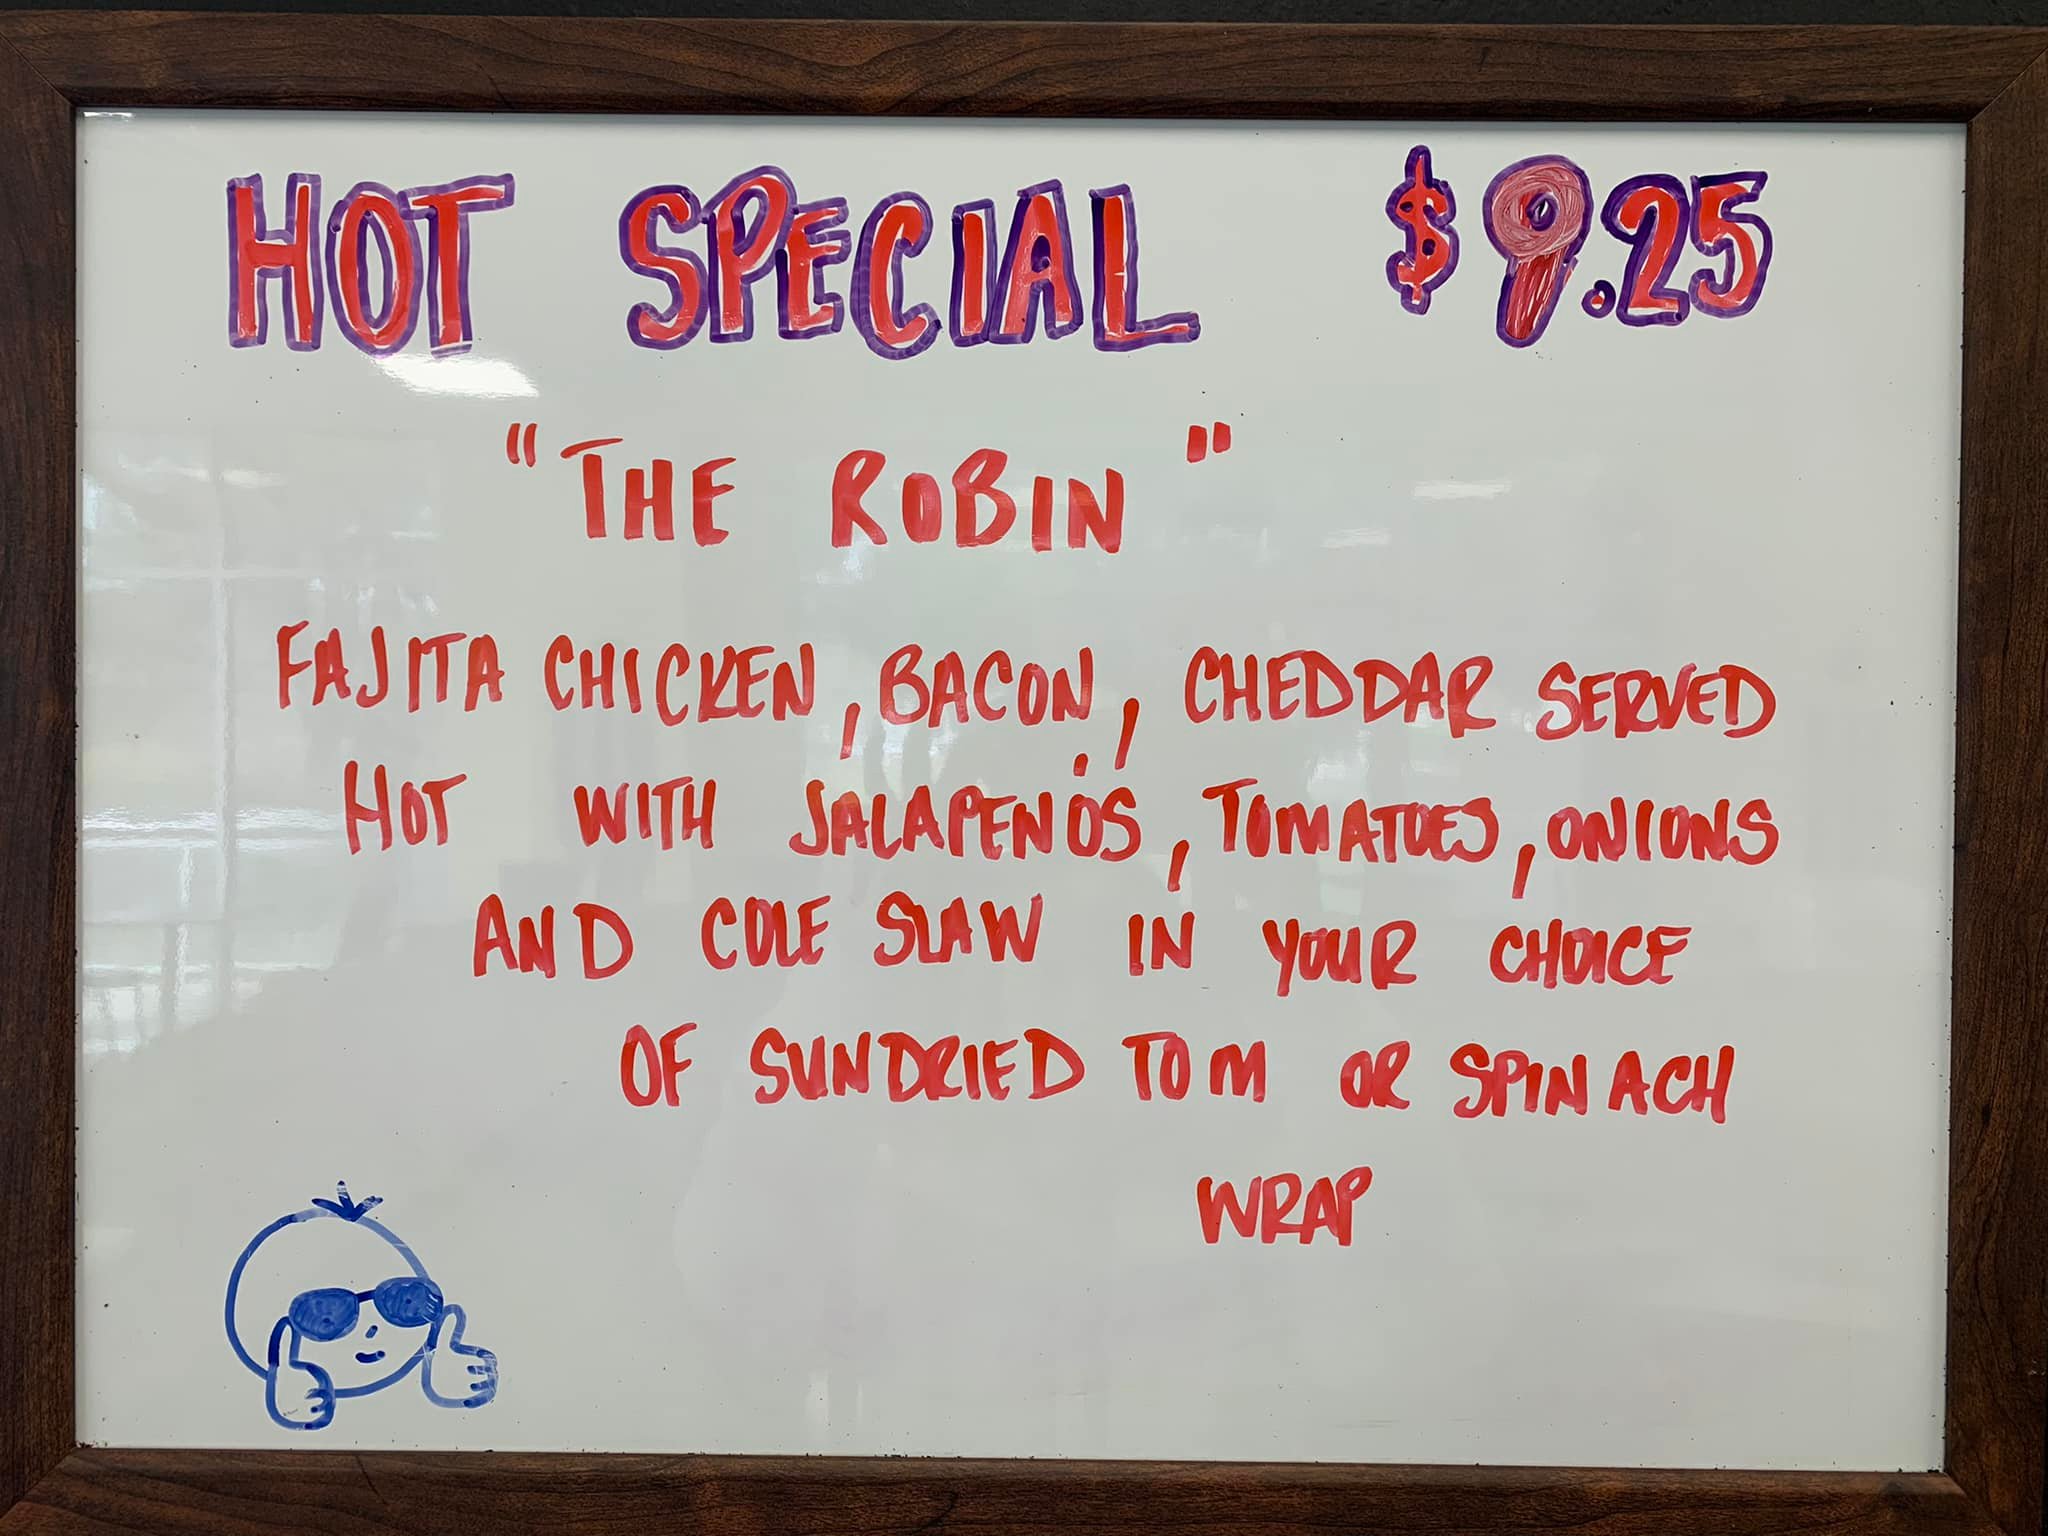 HOT SPECIAL $9.25
"THE ROBIN"
FAJITA CHICKEN, BACON, CHEDDAR SERVED
HOT WITH JALAPENOS, TOMATOES, ONIONS
AND COLE SLAW IN YOUR CHOICE
OF SUNDRIED TOM OR SPINACH
WRAP